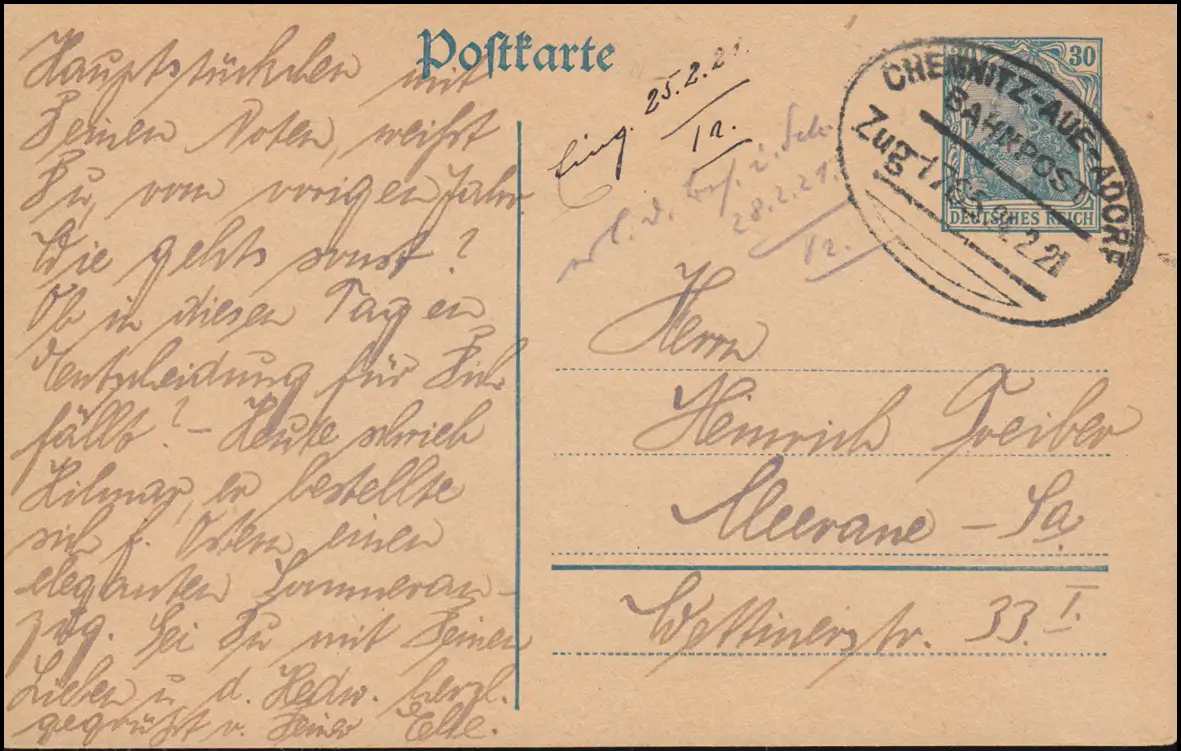 Postkarte
30
DEUTSCHES REICH
CHEMNITZ-AUE-ADORF
BAHNPOST
Zug 1765
2.21
Hauptstückchen mit
Deinen Noten, weißt
Du, vom vorigen Jahr.
Wie gehts sonst?
Ob in diesen Tagen
Entscheidung für Dich
fällt? – Heute schrieb
Hilmar, er bestellte
sich f. Ostern einen
eleganten Sommeran-
zug. Sei Du mit Deinen
Lieben u. d. Hedw. herzl.
gegrüßt v. Deiner Else.
Eing. 25.2.21.
28.2.21.
Herrn
Heinrich Treiber
Meerane – Sa
Wettinerstr. 33 I.